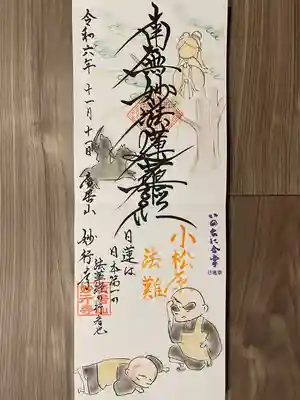 南無妙法蓮華経
小松原
法難
日蓮は
日本第一の
法華経の行者也
令和六年 十一月十一日 廣居山 妙行寺